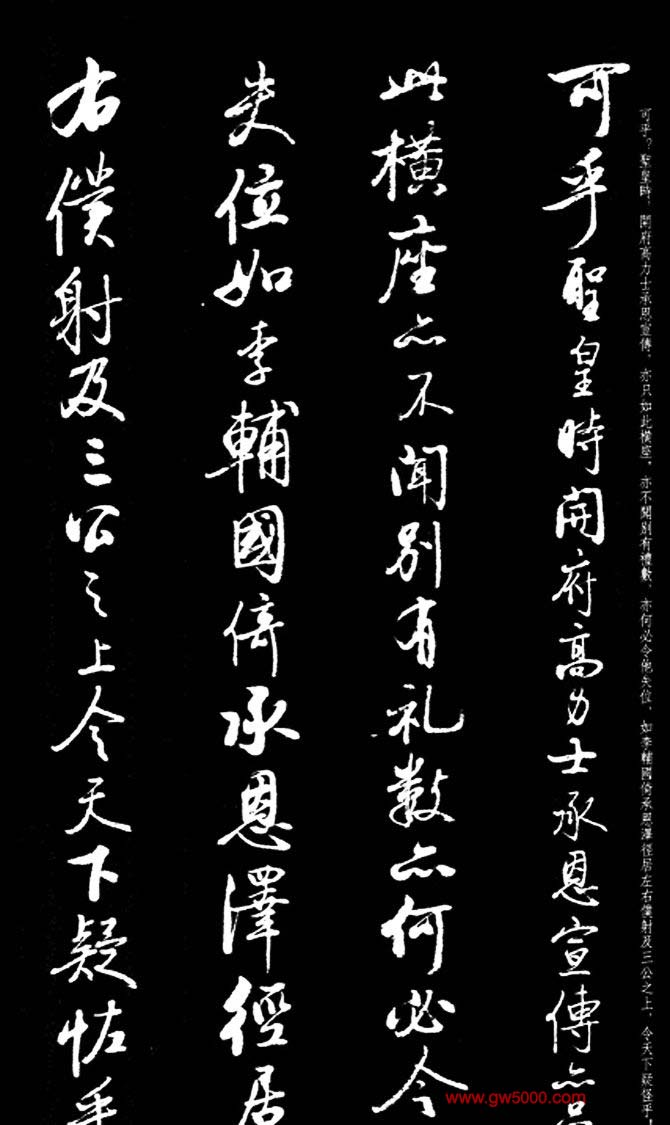 可乎？聖皇時，開府高力士承恩宣傳，亦只如此橫座，亦不聞別有禮數，亦何必令他失位，如李輔國倚承恩澤徑居左右僕射及三公之上，令天下疑怪乎！
可乎聖皇時開府高力士承恩宣傳亦
此橫座亦不聞別有礼數亦何必令
失位如李輔國倚承恩澤徑居
右僕射及三公之上令天下疑恠乎
www.gw5000.com